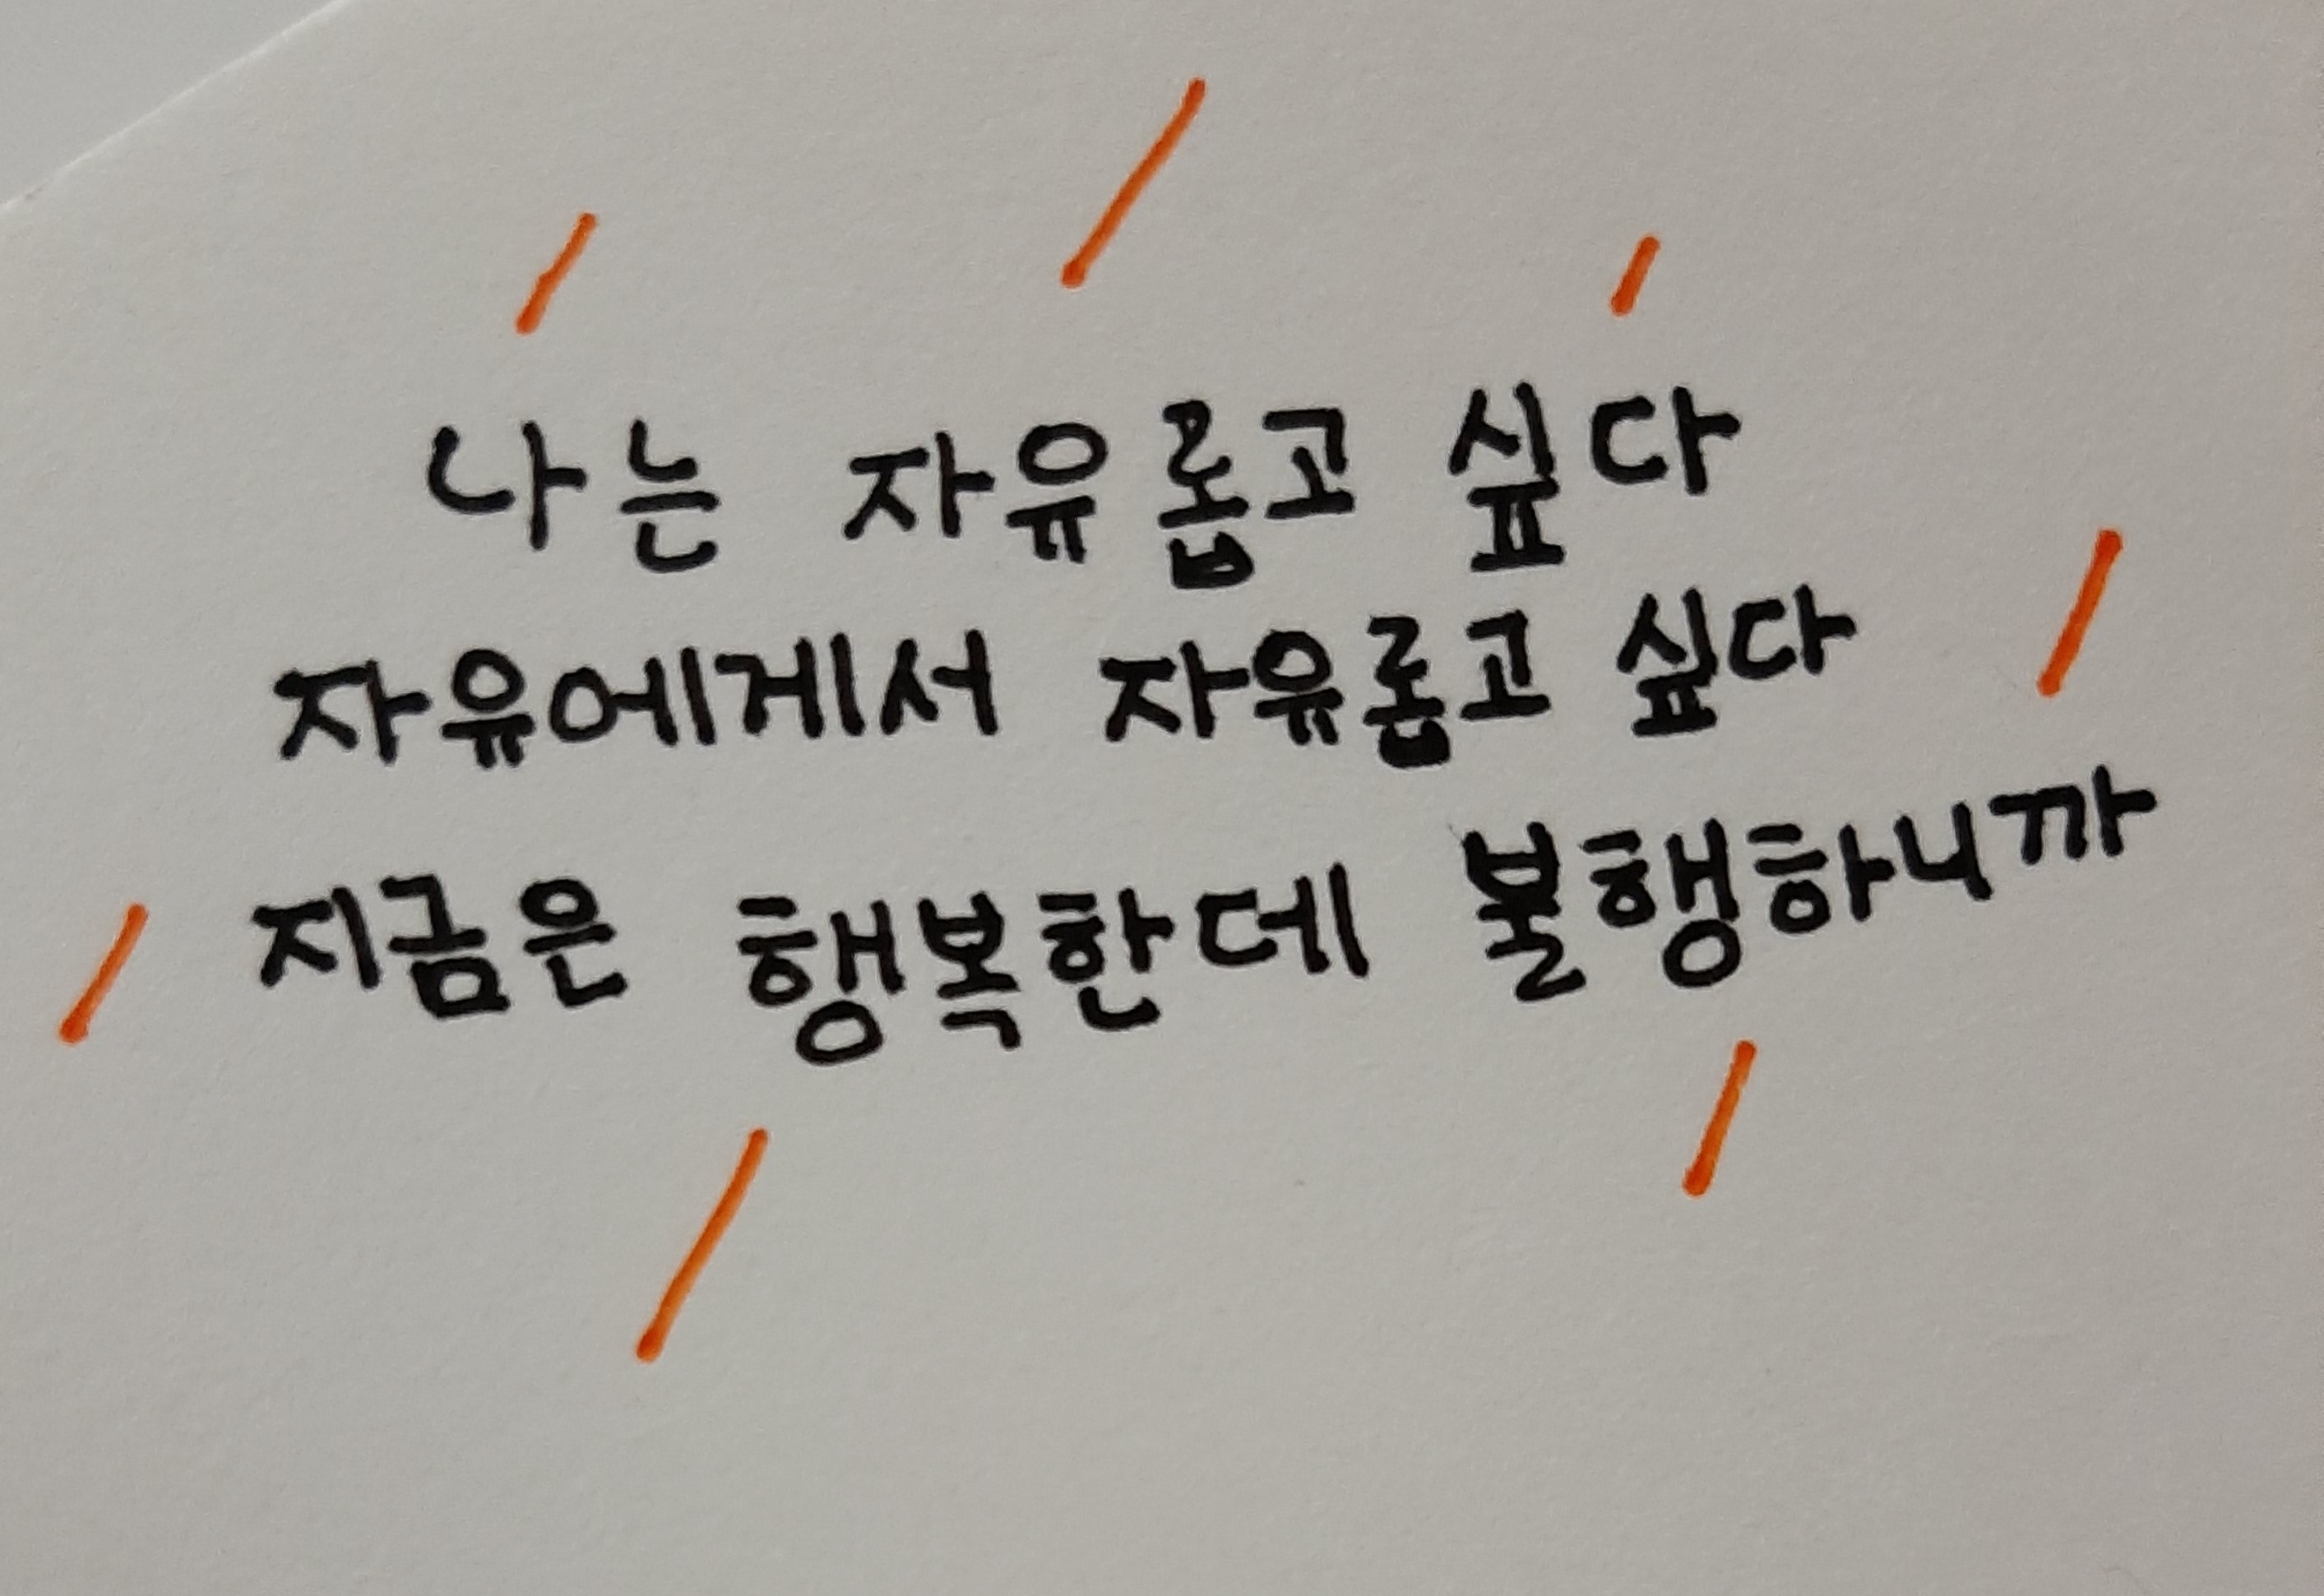 나는 자유롭고 싶다
자유에게서 자유롭고 싶다
지금은 행복한데 불행하니까